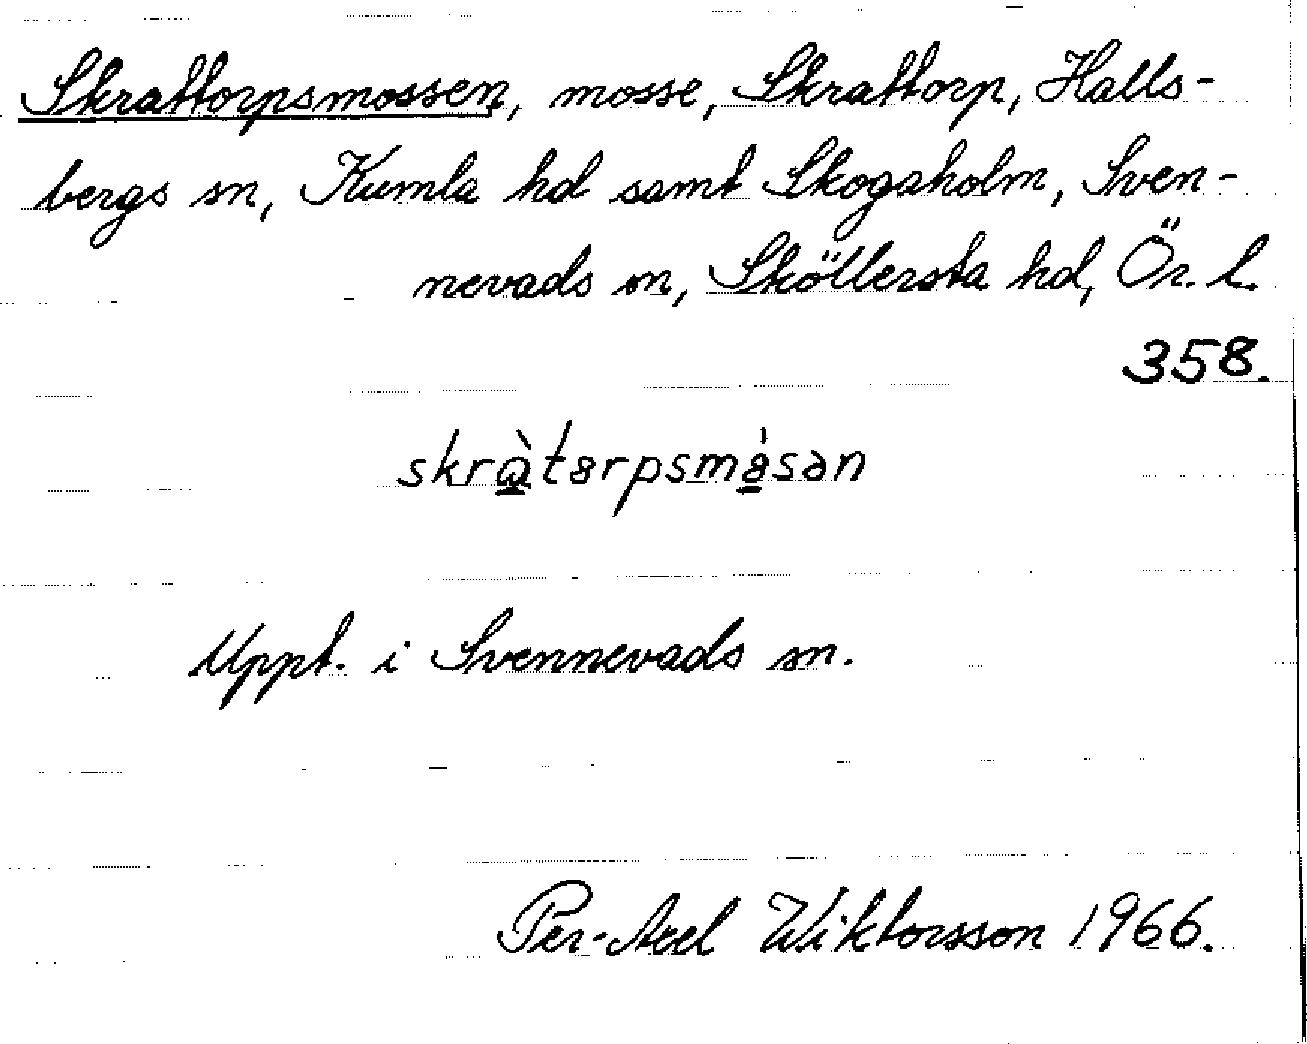 Skrattorpsmossen, mosse, Skrattorp, Halls-
bergs sn, Kumla hd samt Skogaholm, Sven-
nevads sn, Sköllersta hd, Ör. l.
358.
skràtɵrpsmåsən
Uppt. i Svennevads sn.
Per-Axel Wiktorsson 1966.